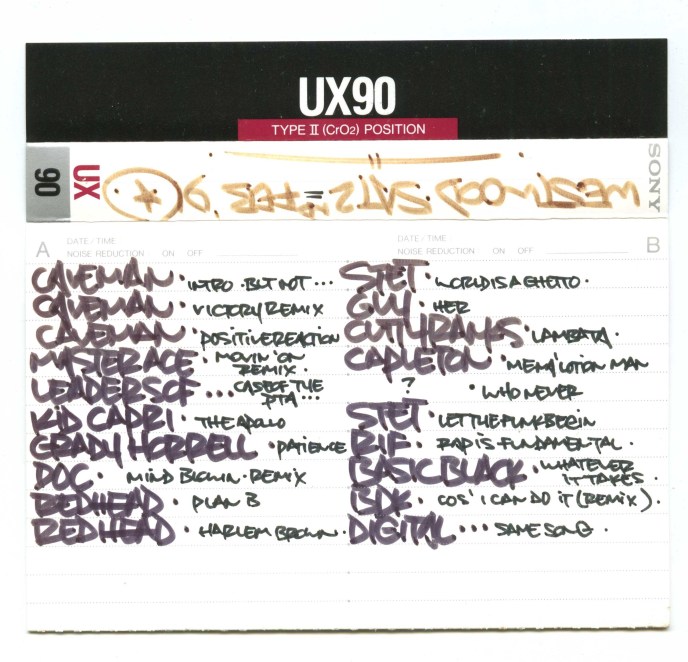 UX90
TYPE II (CrO2) POSITION
SONY
WESTWOOD SAT 2 FEB
UX
90
A DATE / TIME
NOISE REDUCTION ON OFF
CAVEMAN · INTRO · BUT NOT ...
CAVEMAN · VICTORY REMIX
CAVEMAN · POSITIVE REACTION
MASTER ACE · MOVIN' ON
REMIX ·
LEADERS OF ... CASE OF THE
PTA ...
KID CAPRI · THE APOLLO
GRADY HORRELL · PATIENCE
DOC · MIND BLOWN · REMIX
REDHEAD · PLAN B
REDHEAD · HARLEM BROWN ·
DATE / TIME B
NOISE REDUCTION ON OFF
STET · WORLD IS A GHETTO ·
GUY · HER
CUTTY RANKS · LAMBATA ·
CAPLETON · 'LOTION MAN
? · WHO NEVER
STET · LET THE FUNK BEGIN
RIF · RAP IS FUNDAMENTAL ·
BASIC BLACK · WHATEVER
IT TAKES ·
BDK · COS' I CAN DO IT (REMIX) ·
DIGITAL ... SAME SONG ·